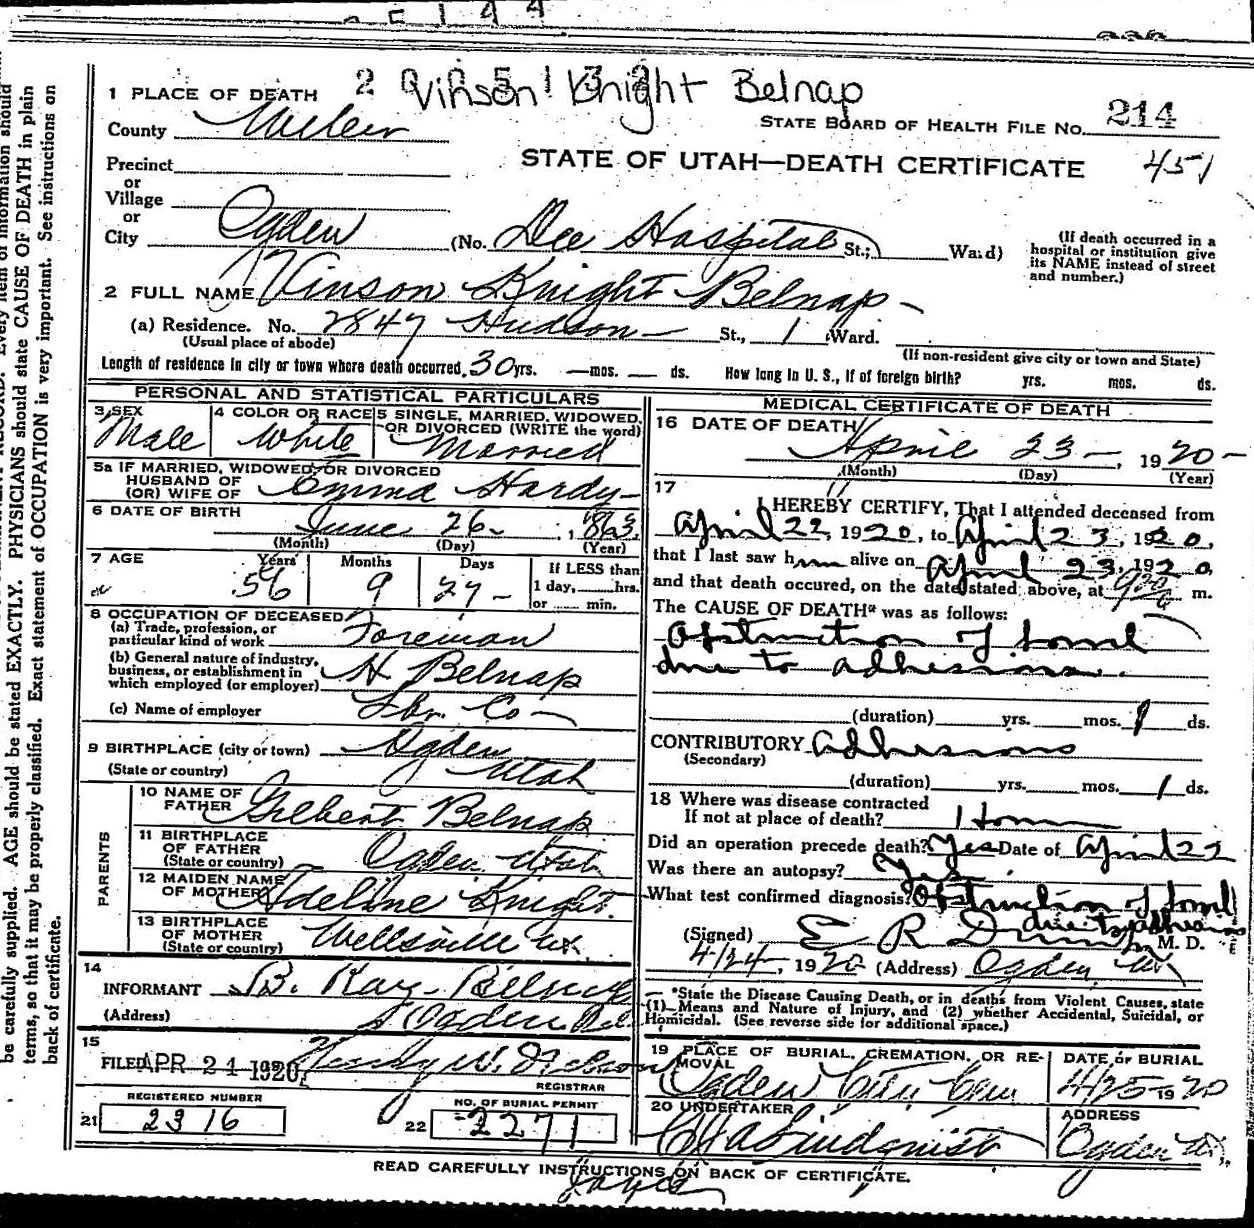 2 0 5 1 3 2
Vinson Knight Belnap
1 PLACE OF DEATH
STATE BOARD OF HEALTH FILE No. 214
County Weber
STATE OF UTAH—DEATH CERTIFICATE 451
Precinct
or
Village
or
City Ogden (No. Dee Hospital St.; Ward)
(If death occurred in a hospital or institution give its NAME instead of street and number.)
2 FULL NAME Vinson Knight Belnap
(a) Residence. No. 2847 Hudson St., 1 Ward.
(Usual place of abode) (If non-resident give city or town and State)
Length of residence in city or town where death occurred. 30 yrs. — mos. — ds. How long in U. S., if of foreign birth? yrs. mos. ds.
PERSONAL AND STATISTICAL PARTICULARS
3 SEX Male
4 COLOR OR RACE White
5 SINGLE, MARRIED, WIDOWED, OR DIVORCED (WRITE the word) Married
5a IF MARRIED, WIDOWED, OR DIVORCED
HUSBAND OF
(OR) WIFE OF Emma Hardy
6 DATE OF BIRTH June 26, 1863
(Month) (Day) (Year)
7 AGE
Years 56 Months 9 Days 27
If LESS than
1 day, hrs.
or min.
8 OCCUPATION OF DECEASED
(a) Trade, profession, or
particular kind of work Foreman
(b) General nature of industry,
business, or establishment in
which employed (or employer) H Belnap
(c) Name of employer Lbr. Co
9 BIRTHPLACE (city or town) Ogden
(State or country) Utah
PARENTS
10 NAME OF
FATHER Gilbert Belnap
11 BIRTHPLACE
OF FATHER
(State or country) Ogden Utah
12 MAIDEN NAME
OF MOTHER Adeline Knight
13 BIRTHPLACE
OF MOTHER
(State or country) Wellsville Ut.
14
INFORMANT B. Ray Belnap
(Address) Ogden
15
FILED APR 24 1920
REGISTRAR
REGISTERED NUMBER
21 2316
NO. OF BURIAL PERMIT
22 2271
MEDICAL CERTIFICATE OF DEATH
16 DATE OF DEATH
April 23, 1920
(Month) (Day) (Year)
17
I HEREBY CERTIFY, That I attended deceased from
April 22, 1920, to April 23, 1920,
that I last saw him alive on April 23, 1920,
and that death occured, on the date stated above, at m.
The CAUSE OF DEATH* was as follows:
Obstruction of bowel
due to adhesions.
(duration) yrs. mos. 1 ds.
CONTRIBUTORY Adhesions
(Secondary)
(duration) yrs. mos. 1 ds.
18 Where was disease contracted
If not at place of death? Home
Did an operation precede death? Yes Date of April 22
Was there an autopsy? Yes.
What test confirmed diagnosis? Obstruction of bowel
due to adhesions
(Signed) E R Dumke M. D.
4/24, 1920 (Address) Ogden Ut
*State the Disease Causing Death, or in deaths from Violent Causes, state
(1) Means and Nature of Injury, and (2) whether Accidental, Suicidal, or
Homicidal. (See reverse side for additional space.)
19 PLACE OF BURIAL, CREMATION, OR RE-
MOVAL
Ogden City Cem
DATE of BURIAL
4/25 1920
20 UNDERTAKER
C J A Lindquist
ADDRESS
Ogden Ut.
READ CAREFULLY INSTRUCTIONS ON BACK OF CERTIFICATE.
be carefully supplied. AGE should be stated EXACTLY. PHYSICIANS should state CAUSE OF DEATH in plain
terms, so that it may be properly classified. Exact statement of OCCUPATION is very important. See instructions on
back of certificate.